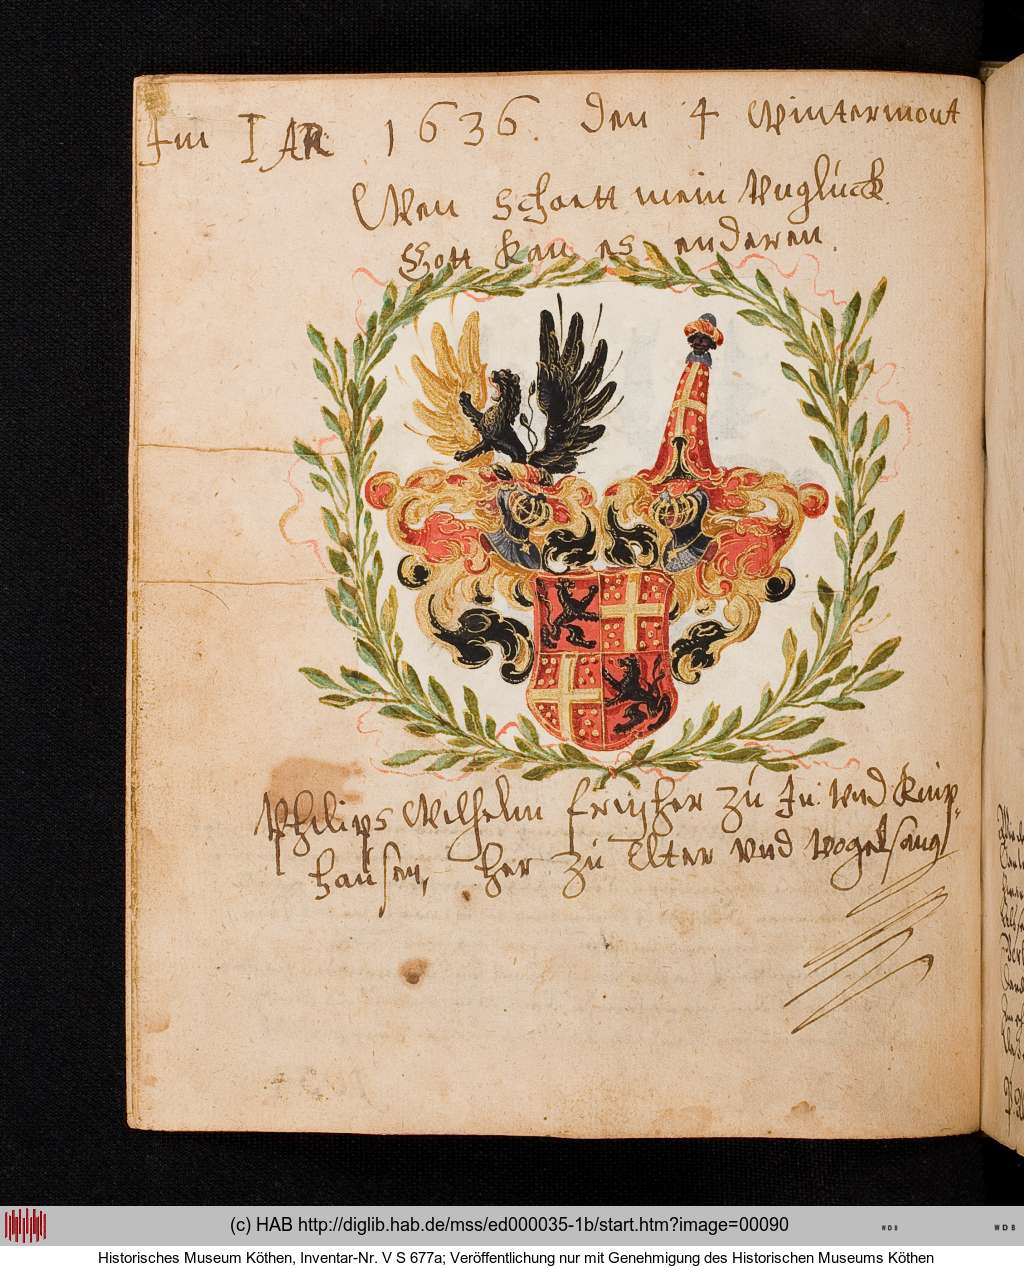 Im IAR 1636. den 4 Wintermont
Wen schoett mein Unglück
Gott kan es enderen.
Philips Wilhelm freyher zu In: und Knip-
hausen, her zu Elter und Vogelsang
(c) HAB http://diglib.hab.de/mss/ed000035-1b/start.htm?image=00090
WDB
WDB
Historisches Museum Köthen, Inventar-Nr. V S 677a; Veröffentlichung nur mit Genehmigung des Historischen Museums Köthen